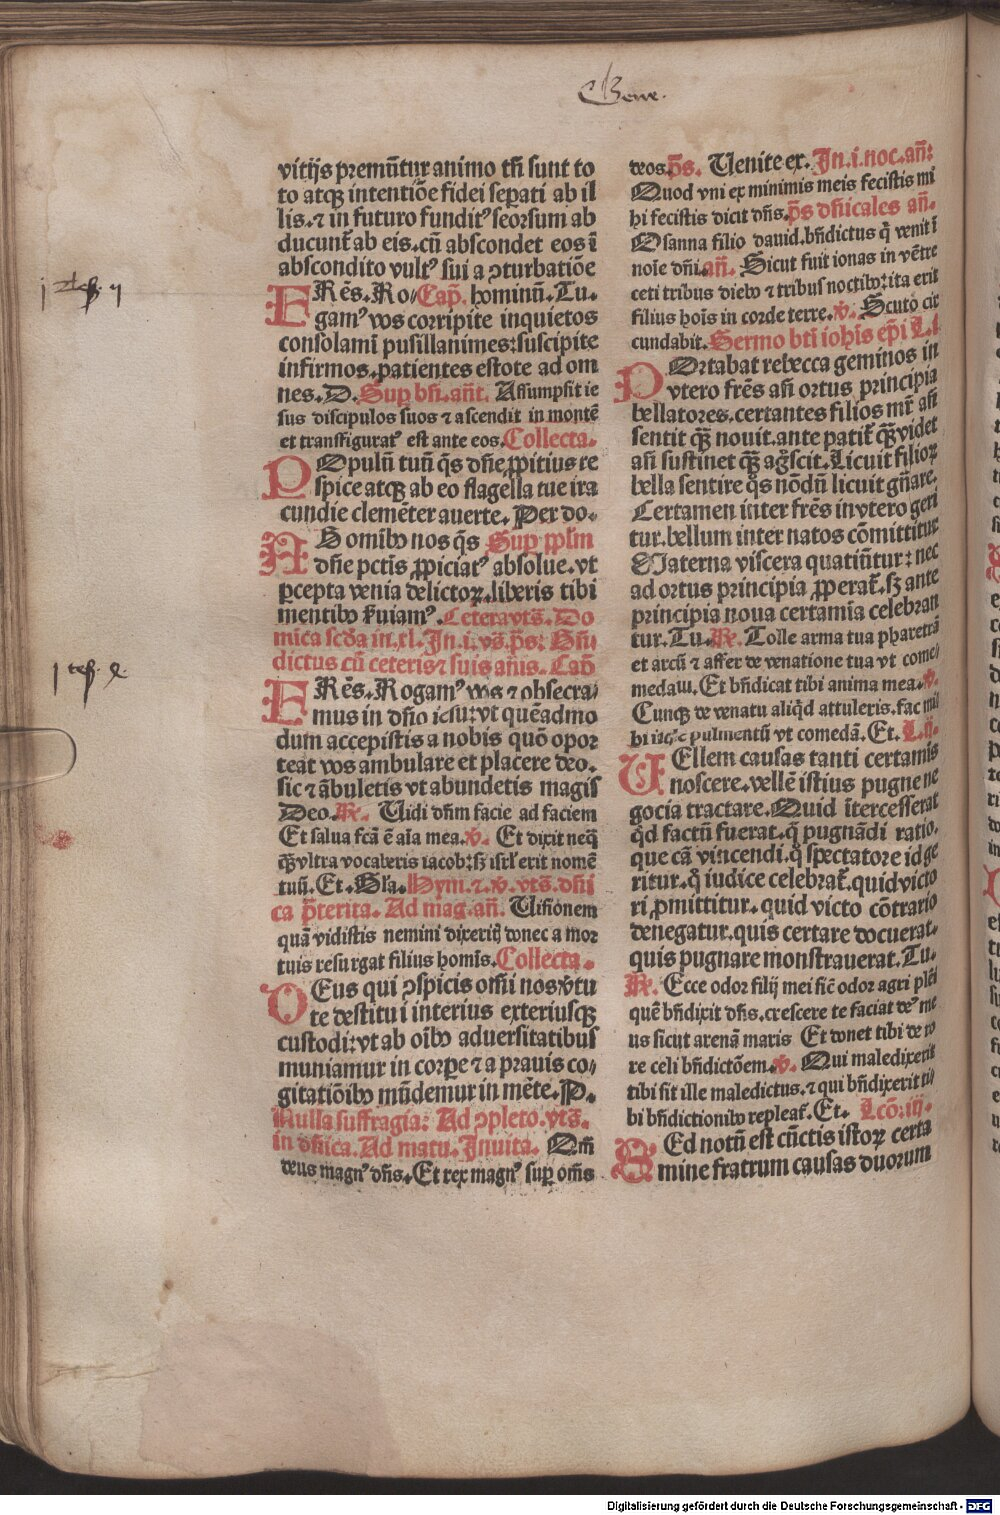 Gene.
vitijs premūtur animo tñ sunt to
to atqꝫ intentiōe fidei seꝑati ab il
lis.⁊ in futuro fundit᷒ seorsum ab
ducunt᷑ ab eis.cū abscondet eos ī
abscondito vult᷒ sui a ꝯturbatiōe
FRēs.Ro/Cap̄. hominū.Tu.
gam᷒ vos corripite inquietos
consolamī pusillanimes:suscipite
infirmos.patientes estote ad om
nes.D. Suꝑ bñ.añt. Assumpsit ie
sus discipulos suos ⁊ ascendit in montē
et transfigurat᷒ est ante eos.Collecta.
POpulū tuū q̄s dñe ꝓpitius re
spice atqꝫ ab eo flagella tue ira
cundie clemēter auerte. Per do.
AB omībꝰ nos q̄s Suꝑ ppl̄m
dñe pctīs ꝓpiciat᷒ absolue.vt
ꝑcepta venia delictoꝝ.liberis tibi
mentibꝰ ẜuiam᷒. Cetera vts̄. Do
mīca scd̄a in.xl. In.i.vs̄.p̄s: Bñ
dictus cū ceteris⁊ suis añis. Cap̄
FRēs.Rogam᷒ vos ⁊ obsecra/
mus in dño iesu:vt quēadmo
dum accepistis a nobis quō opor
teat vos ambulare et placere deo.
sic ⁊ ābuletis vt abundetis magis
Deo.℟. Uidi dñm facie ad faciem
Et salua fcā ē aīa mea.℣. Et dixit neq̄
qꝫ vltra vocaberis iacob:sꝫ isrl̄ erit nomē
tuū.Et.Gl̄a.Hym.⁊.℣.vts̄.dñi
ca p̄terita. Ad mag.añ. Uisionem
quā vidistis nemini dixeritꝭ donec a mor
tuis resurgat filius homīs.Collecta.
DEus qui ꝯspicis om̄i nos v̄tu
te destitui interius exteriusqꝫ
custodi:vt ab oībꝰ aduersitatibus
muniamur in corꝑe ⁊ a prauis co/
gitatiōibꝰ mūdemur in mēte.P.
Nulla suffragia: Ad ꝯpleto.vts̄.
in dñica. Ad matu. Inuita. Qm̄
deus magn᷒ dñs.Et rex magn᷒ suꝑ om̄s
deos.p̄s. Uenite ex. In.i.noc.añ:
Quod vni ex minimis meis fecistis mi
hi fecistis dicit dñs.p̄s dñicales añ.
Osanna filio dauid.bñdictus q̄ venit ī
noīe dñi.añ. Sicut fuit ionas in vētre
ceti tribus diebꝰ ⁊ tribus noctibꝰ:ita erit
filius hoīs in corde terre.℣. Scuto cir
cundabit. Sermo btī iohīs ep̄i L.i
POrtabat rebecca geminos in
vtero frēs añ ortus principia
bellatores.certantes filios mr̄ añ
sentit qꝫ nouit.ante patit᷑ qꝫ videt
añ sustinet qꝫ aḡscit.Licuit filioꝝ
bella sentire q̄s nōdū licuit gñare.
Certamen inter frēs in vtero geri
tur.bellum inter natos cōmittitur
Materna viscera quatiūtur: nec
ad ortus principia ꝓperat᷑.sꝫ ante
principia noua certamīa celebran
tur.Tu.℟. Tolle arma tua pharetrā
et arcū ⁊ affer de venatione tua vt come/
medam.Et bñdicat tibi anima mea.℣.
Cunqꝫ de venatu aliqd̄ attuleris.fac mi
hi inde pulmentū vt comedā.Et. L.ij.
UEllem causas tanti certamīs
noscere.vellē istius pugne ne
gocia tractare.Quid ītercesserat
qd̄ factū fuerat.q̄ pugnādi ratio.
que cā vincendi.q̄ spectatore id ge
ritur.q̄ iudice celebrat᷑.quid victo
ri ꝓmittitur.quid victo cōtrario
denegatur.quis certare docuerat.
quis pugnare monstrauerat.Tu.
℟. Ecce odor filij mei sic̄ odor agri pleī
quē bñdixit dñs.crescere te faciat de᷒ me
us sicut arenā maris Et donet tibi de ro
re celi bñdictōem.℣. Qui maledixerit
tibi sit ille maledictus.⁊ qui bñdixerit ti/
bi bñdictionibꝰ repleat᷑.Et. Lcō.iij.
SEd notū est cūctis istoꝝ certa
mine fratrum causas duorum
Digitalisierung gefördert durch die Deutsche Forschungsgemeinschaft - DFG